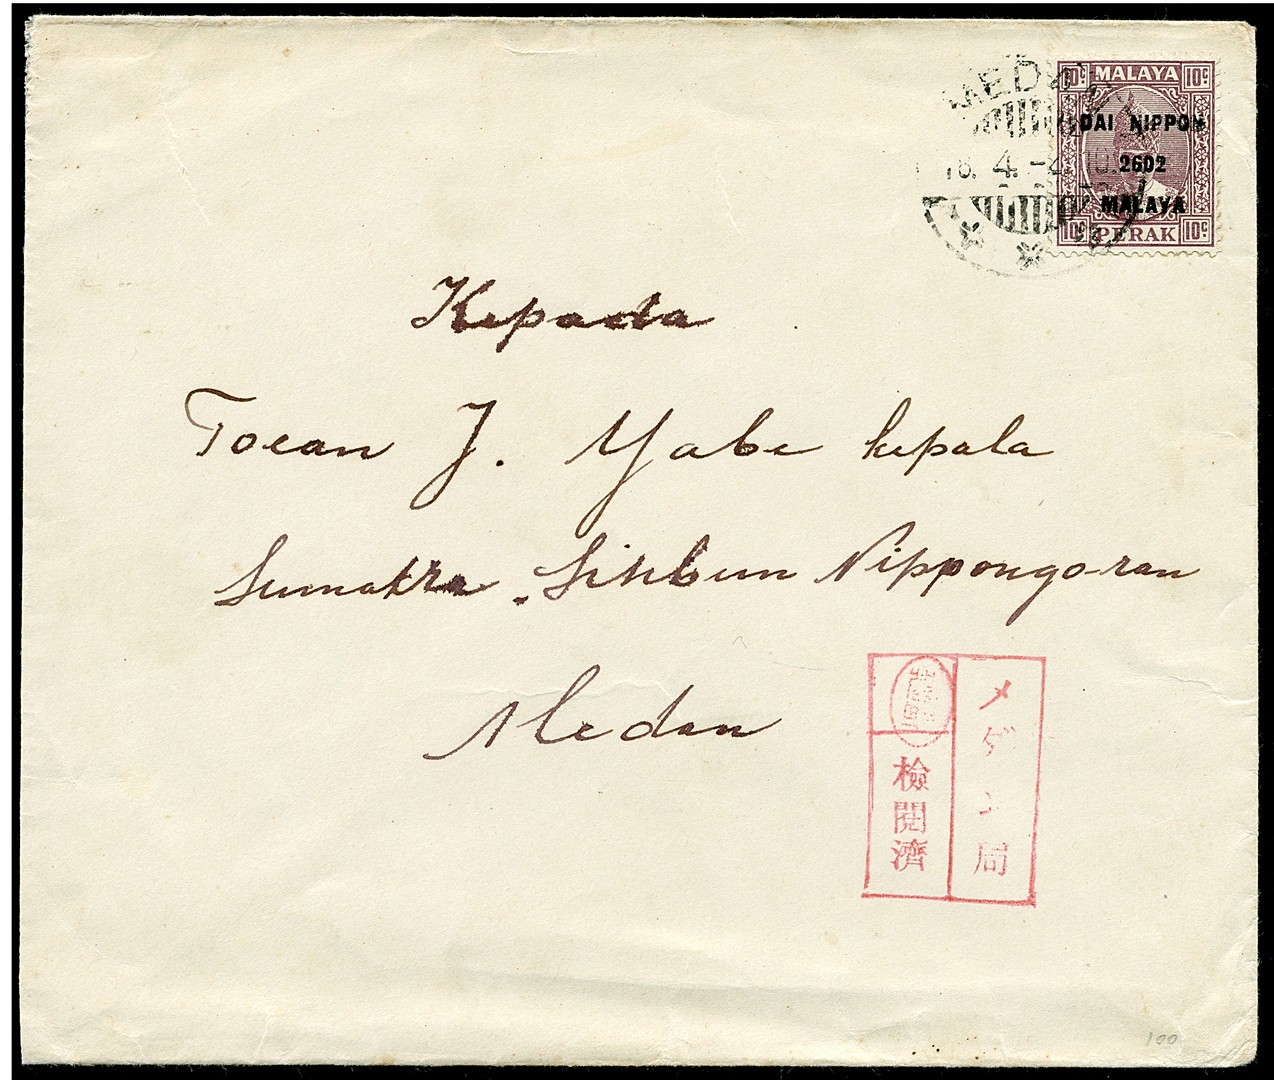 MEDAN
10c MALAYA 10c
DAI NIPPON
2602
MALAYA
10c PERAK 10c
18. 4.
Kepada
Toean J. Yabe kepala
Sumatra Sinbun Nippongo-ran
Medan
メダン局
檢閲濟
100